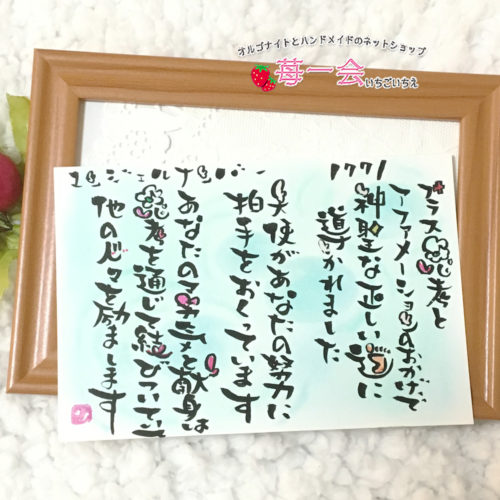 オルゴナイトとハンドメイドのネットショップ
苺一会
いちごいちえ
エンジェルナンバー 1771
プラス思考と
アファメーションのおかげで
神聖な正しい道に
導かれました
天使があなたの努力に
拍手をおくっています
あなたの と献身は
思考を通じて結びついてい
他の人々を励まします